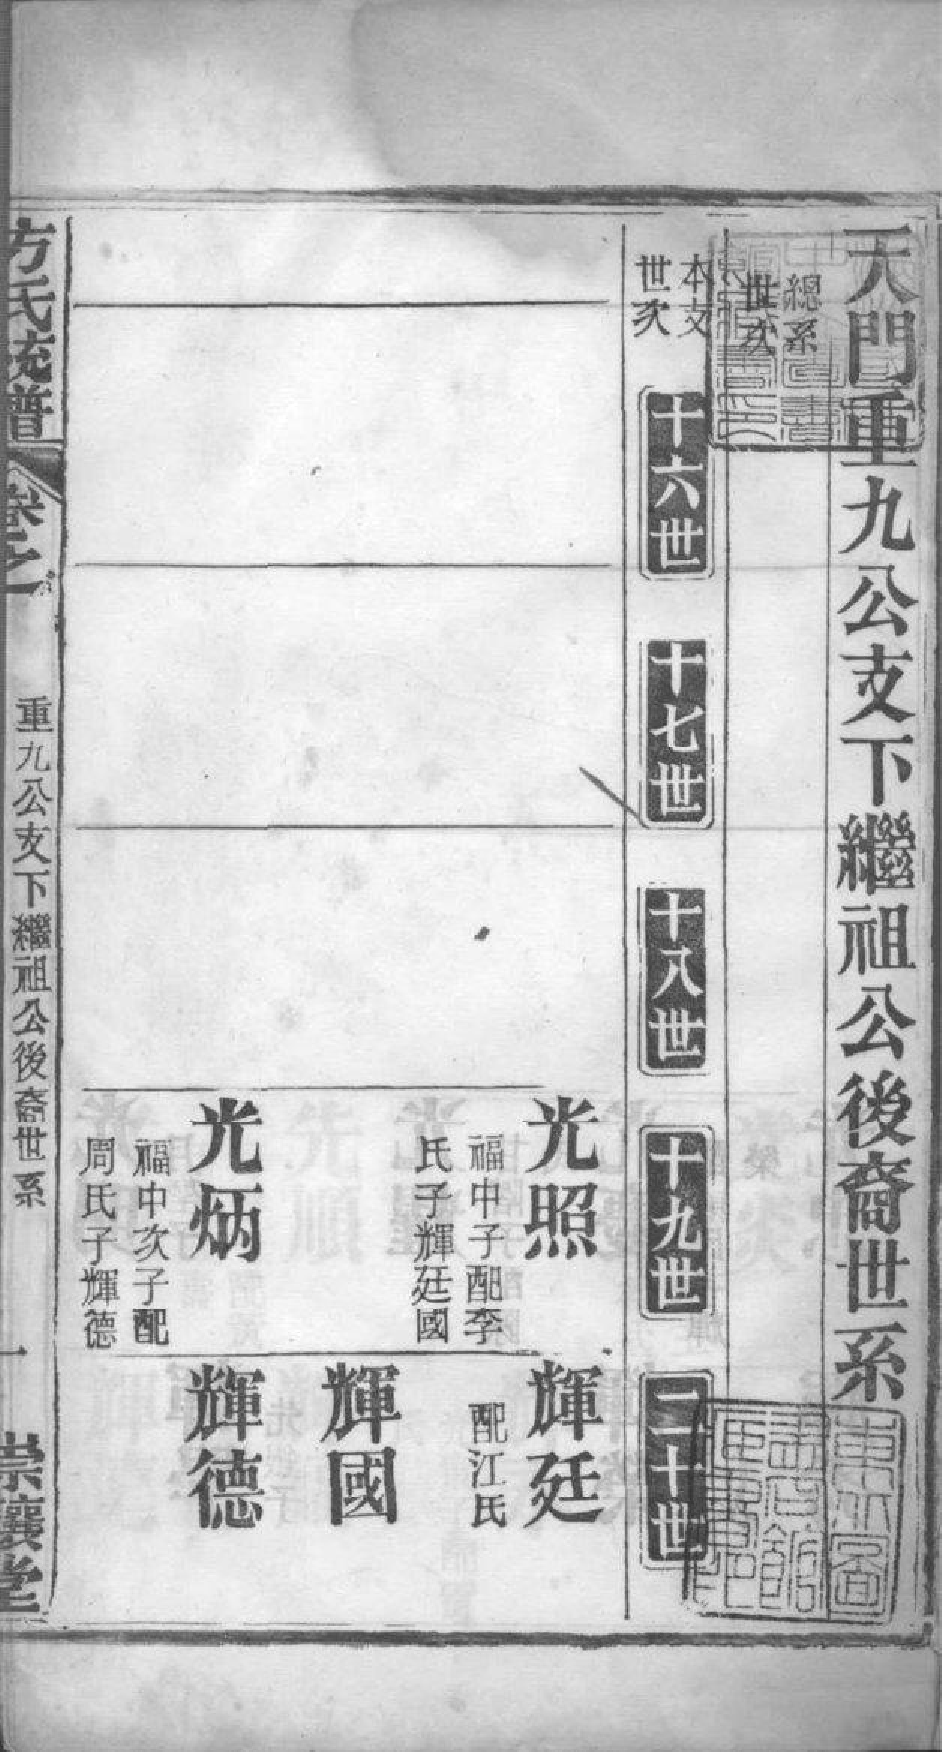 天門重九公支下繼祖公後裔世系
總系
世次
本支
世次
十六世
十七世
十八世
十九世
二十世
光照
福中子配李
氏子輝廷國
輝廷
配江氏
輝國
光炳
福中次子配
周氏子輝德
輝德
方氏統譜
卷之
重九公支下繼祖公後裔世系
一
崇讓堂